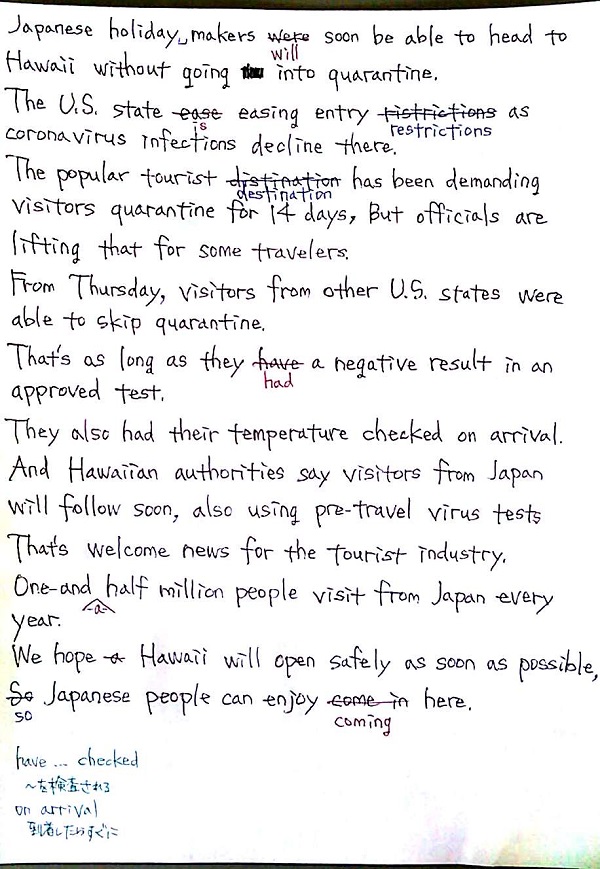 Japanese holiday makers were soon be able to head to
will
Hawaii without going into quarantine.
The U.S. state ease easing entry ristrictions as
is restrictions
coronavirus infections decline there.
The popular tourist distination has been demanding
destination
visitors quarantine for 14 days, But officials are
lifting that for some travelers.
From Thursday, visitors from other U.S. states were
able to skip quarantine.
That's as long as they have a negative result in an
had
approved test.
They also had their temperature checked on arrival.
And Hawaiian authorities say visitors from Japan
will follow soon, also using pre-travel virus tests
That's welcome news for the tourist industry.
One-and half million people visit from Japan every
-a-
year.
We hope a Hawaii will open safely as soon as possible,
So Japanese people can enjoy come in here.
so coming
have ... checked
~を検査される
on arrival
到着したらすぐに